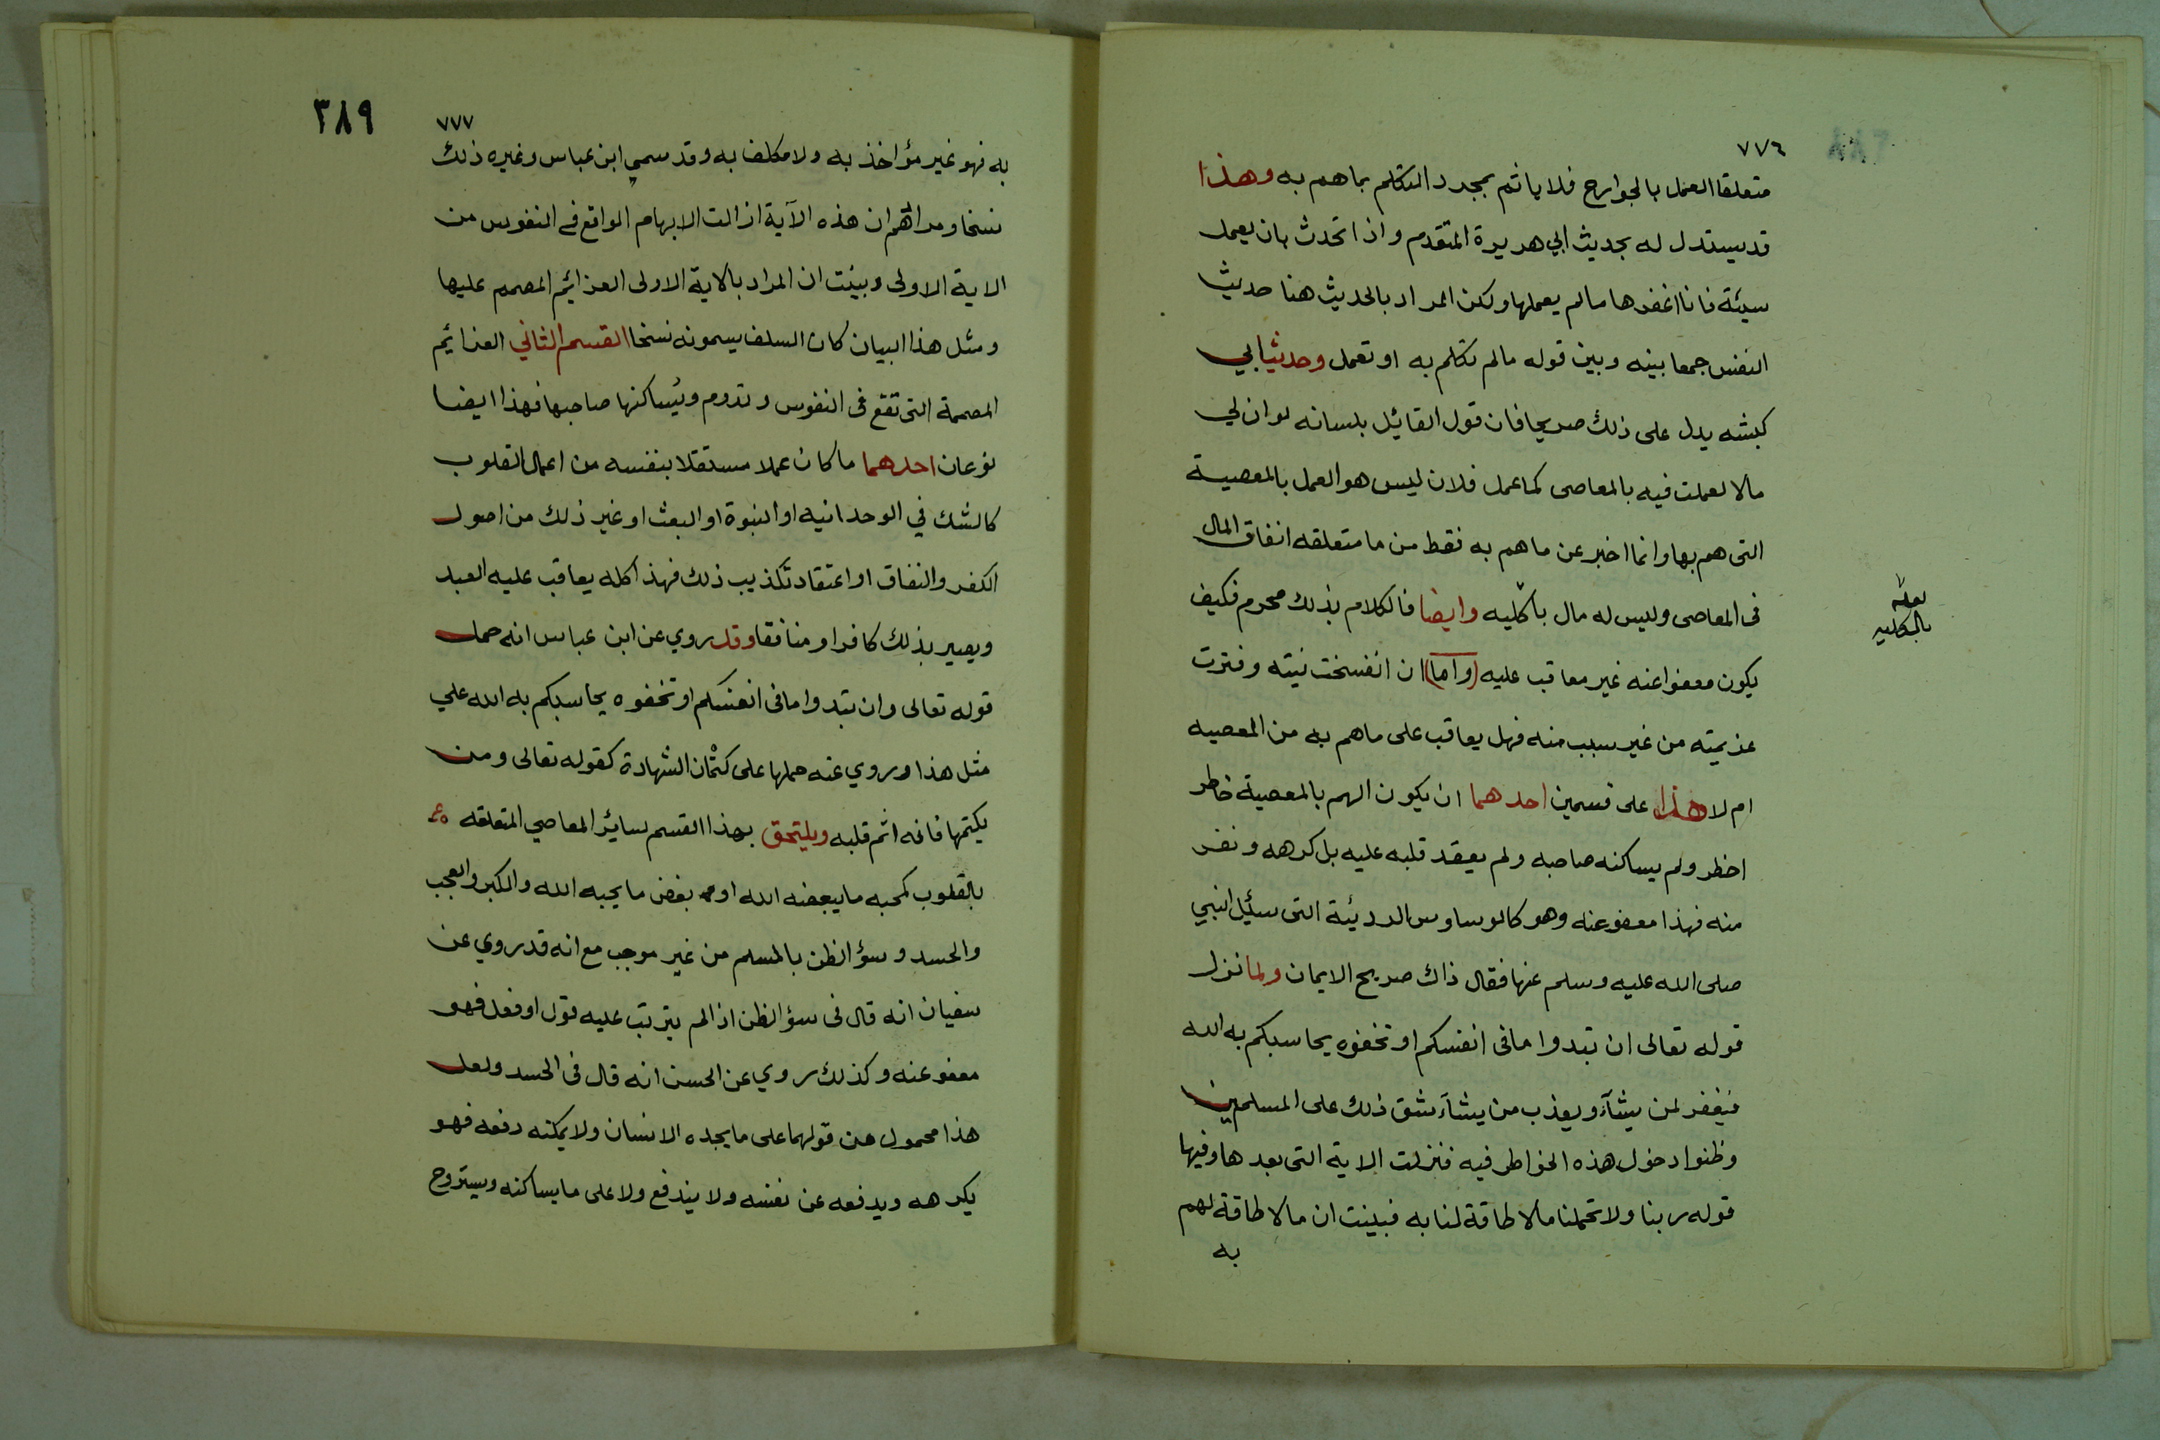 ٧٧٦
متعلقا العمل بالجوارح فلا ياثم بمجرد التكلم بما هم به وهذا
قد يستدل له بحديث ابي هريرة المتقدم واذا تحدث بان يعمل
سيئة فانا اغفرها مالم يعملها ولكن المراد بالحديث هنا حديث
النفس جمعا بينه وبين قوله مالم تكلم به او تعمل وحديث ابي
كبشه يدل على ذلك صريحا فان قول القائل بلسانه لو ان لي
مالا لعملت فيه بالمعاصى كما عمل فلان ليس هو العمل بالمعصية
التى هم بها وانما اخبر عن ما هم به فقط من ما متعلقه انفاق المال
فى المعاصى وليس له مال باكليه وايضا فالكلام بذلك محرم فكيف
لعله
بالكليه
يكون معفوا عنه غير معاقب عليه (واما) ان انفسخت نيته وفترت
عزيمته من غير سبب منه فهل يعاقب على ما هم به من المعصيه
ام لا هذا على قسمين احدهما ان يكون الهم بالمعصية خاطر
اخطر ولم يساكنه صاحبه ولم يعقد قلبه عليه بل كرهه ونفر
منه فهذا معفو عنه وهو كالوساوس الرديئة التى سئيل النبي
صلى الله عليه وسلم عنها فقال ذاك صريح الايمان ولما نزل
قوله تعالى ان تبدوا مافى انفسكم او تخفوه يحاسبكم به الله
فيغفر لمن يشآء ويعذب من يشآء شق ذلك على المسلمين
وظنوا دخول هذه الخواطر فيه فنزلت الاية التى بعدها وفيها
قوله ربنا ولا تحملنا مالا طاقة لنا به فبينت ان مالا طاقة لهم
به
٧٧٧
٣٨٩
به فهو غير مؤاخذ به ولا مكلف به وقد سمي ابن عباس وغيره ذلك
نسخا ومرادهم ان هذه الآية ازالت الابهام الواقع فى النفوس من
الاية الاولى وبينت ان المراد بالاية الاولى العزائيم المصمم عليها
ومثل هذا البيان كان السلف يسمونه نسخا القسم الثاني العزائيم
المصممة التى تقع فى النفوس وتدوم ويساكنها صاحبها فهذا ايضا
نوعان احدهما ما كان عملا مستقلا بنفسه من اعمال القلوب
كالشك في الوحدانيه او النبوة او البعث او غير ذلك من اصول
الكفر والنفاق او اعتقاد تكذيب ذلك فهذا كله يعاقب عليه العبد
ويصير بذلك كافرا ومنافقا وقد روي عن ابن عباس انه حمل
قوله تعالى وان تبدوا مافى انفسكم او تخفوه يحاسبكم به الله علي
مثل هذا وروي عنه حملها على كتمان الشهادة كقوله تعالى ومن
يكتمها فانه اثم قلبه ويلتحق بهذا القسم سائر المعاصي المتعلقه
بالقلوب كمحبه ما يبغضه الله او بغض ما يحبه الله والكبر والعجب
والحسد وسؤ الظن بالمسلم من غير موجب مع انه قد روي عن
سفيان انه قال فى سؤ الظن اذا لم يترتب عليه قول او فعل فهو
معفو عنه وكذلك روي عن الحسن انه قال فى الحسد ولعل
هذا محمول من قولهما على ما يجده الانسان ولا يمكنه دفعه فهو
يكرهه ويدفعه عن نفسه ولا يندفع ولا على ما يساكنه ويستروح